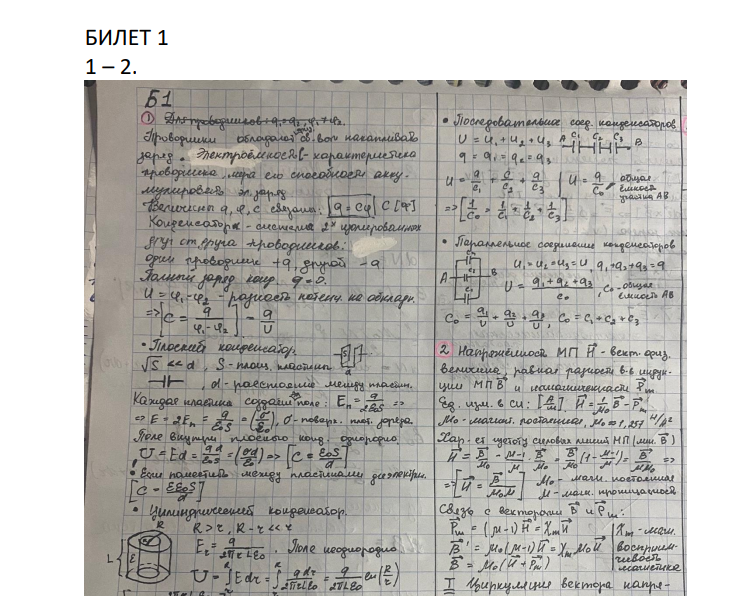 БИЛЕТ 1
1 – 2.
Б1
① Для проводников: q₁=q₂, φ₁+φ₂.
Проводники обладают св-вом накапливать
заряд. Электроёмкость - характеристика
проводника, мера его способности акку-
мулировать эл. заряд
Величины q, φ, c связаны: q = Cφ C [Ф]
Конденсатор - система 2ˣ изолированных
друг от друга проводников:
один проводник +q, другой -q
Полный заряд конд. q=0.
U = φ₁-φ₂ - разность потенц. на обкладк.
=> [C = q/(φ₁-φ₂)] = q/U
• Плоский конденсатор.
√S << d, S - площ. пластин
d - расстояние между пластин.
Каждая пластина создаёт поле: Eₙ = q/2ε₀S =>
=> E = 2Eₙ = q/ε₀S = (σ/ε₀), σ - поверх. плот. заряда
Поле внутри плоского конд. однородно.
U = Ed = qd/ε₀S = (σd/ε₀) => [C = ε₀S/d]
• Если поместить между пластинами диэлектри.
[C = εε₀S/d]
• Цилиндрический конденсатор.
R > r, R - r << r
E_r = q/2πrLε₀. Поле неоднородно
U = ∫Edr = ∫ qdr/2πrLε₀ = q/2πLε₀ ln(R/r)
• Последовательное соед. конденсаторов
U = U₁ + U₂ + U₃ A C₁ C₂ C₃ B
q = q₁ = q₂ = q₃
U = q/C₁ + q/C₂ + q/C₃ | U = q/C₀, общая ёмкость участка AB
=> [1/C₀ = 1/C₁ + 1/C₂ + 1/C₃]
• Параллельное соединение конденсаторов
U₁ = U₂ = U₃ = U, q₁+q₂+q₃ = q
A B U = (q₁+q₂+q₃)/C₀, C₀ - общая ёмкость AB
C₀ = q₁/U + q₂/U + q₃/U, C₀ = C₁ + C₂ + C₃
2 Напряжённость МП H⃗ - вект. физ.
величина, равная разности в-в индук-
ции МП B⃗ и намагниченности P⃗m
Ед. изм. в си: [А/м]. H⃗ = 1/μ₀ B⃗ - P⃗m
μ₀ - магнит. постоянная, μ₀ = 1,257
Хар-ет густоту силовых линий МП (лин. B⃗)
H⃗ = B⃗/μ₀ - (μ-1)/μ · B⃗/μ₀ = B⃗/μ₀ (1 - (μ-1)/μ) = B⃗/μμ₀ =>
=> [H⃗ = B⃗/μ₀μ] μ₀ - магн. постоянная
μ - маг. проницаемость
Связь с векторами B⃗ и P⃗m:
P⃗m = (μ-1)H⃗ = χm H⃗
B⃗' = μ₀(μ-1)H⃗ = χm μ₀ H⃗
B⃗ = μ₀(H⃗ + P⃗m)
χm - маг. восприим-
чивость
магнетика
I Циркуляция вектора напря-